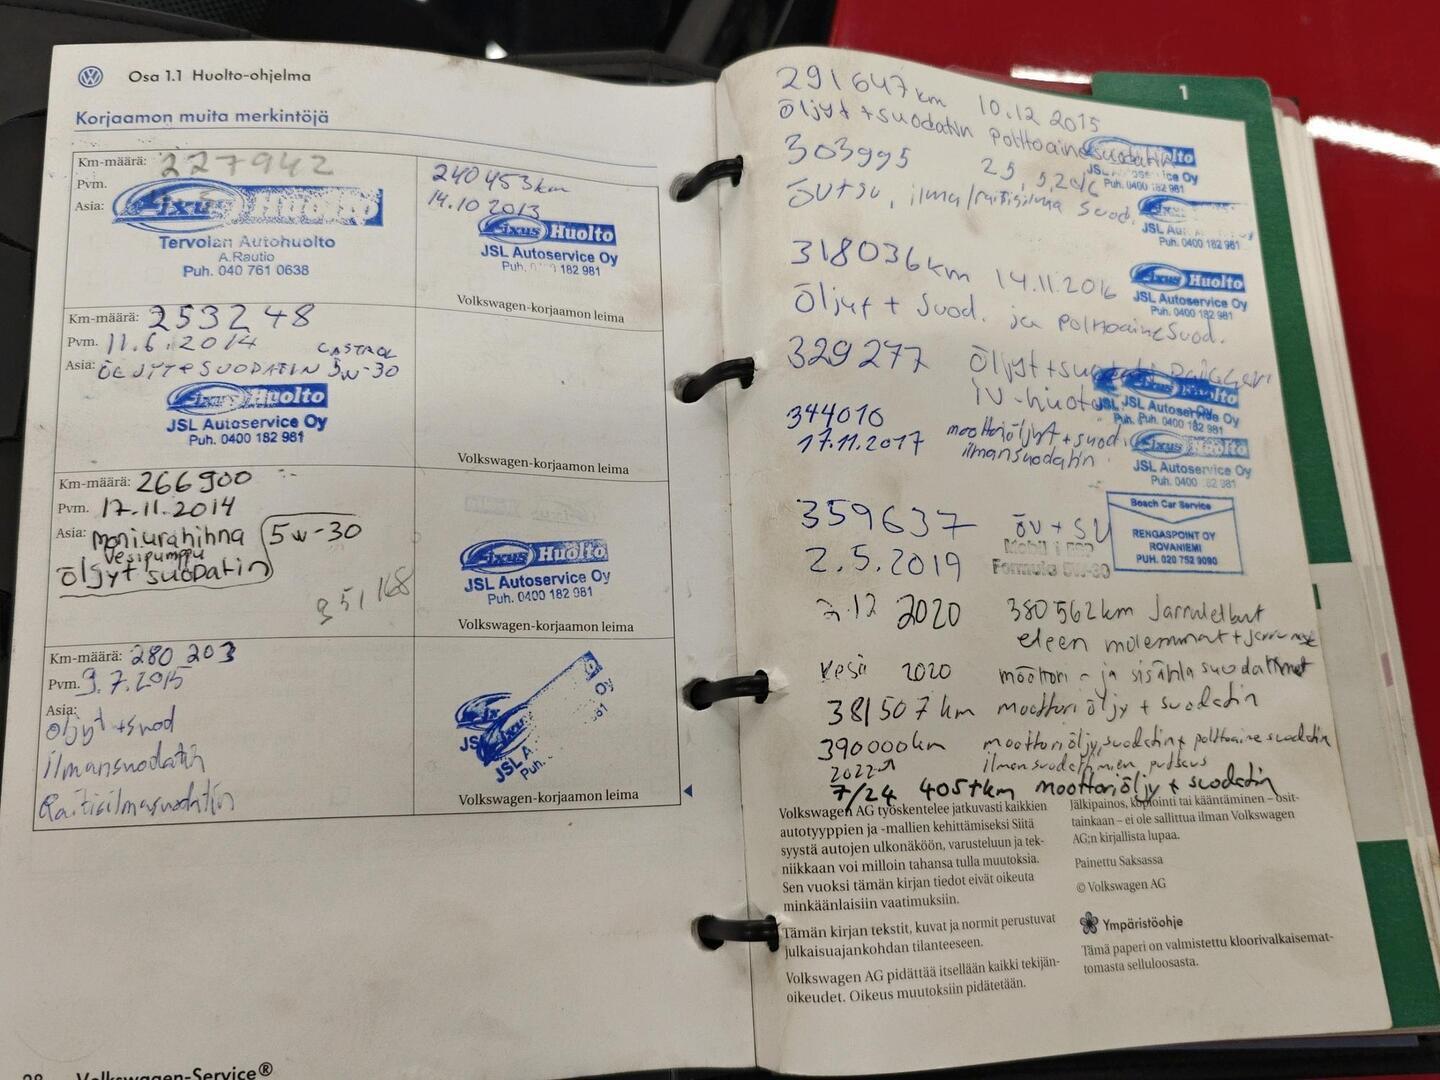 Osa 1.1 Huolto-ohjelma
Korjaamon muita merkintöjä
Km-määrä: 227942
Pvm.
Asia:
Fixus Huolto
Tervolan Autohuolto
A.Rautio
Puh. 040 761 0638
240453km
14.10 2013
Fixus Huolto
JSL Autoservice Oy
Puh. 182 981
Volkswagen-korjaamon leima
Km-määrä: 253248
Pvm. 11.6.2014
CASTROL
Asia: ÖLJYT+SUODATIN 5W-30
Fixus Huolto
JSL Autoservice Oy
Puh. 0400 182 981
Volkswagen-korjaamon leima
Km-määrä: 266900
Pvm. 17.11.2014
Asia: moniurahihna 5W-30
Vesipumppu
öljyt suodatin
351168
Fixus Huolto
JSL Autoservice Oy
Puh. 0400 182 981
Volkswagen-korjaamon leima
Km-määrä: 280 203
Pvm. 9.7.2015
Asia:
öljyt + suod
ilmansuodatin
Raitisilmasuodatin
JSL A
Puh.
Oy
Volkswagen-korjaamon leima
Volkswagen-Service®
1
291647km 10.12 2015
öljyt + suodatin polttoainesuodatin
Puh. 0400 182 981
303995 25.5.2016
öv+su, ilma/raitisilma suod.
Puh. 0400 182 981
318036km 14.11.2016
Fixus Huolto
JSL Autoservice Oy
Puh. 0400 182 981
öljyt + suod. ja polttoainesuod.
329277 öljyt +
JSL Autoservice Oy
Puh. 0400 182 981
344010
17.11.2017 moottoriöljyt + suod.
ilmansuodatin
Fixus Huolto
JSL Autoservice Oy
Puh. 0400 182 981
359637 öv + su
2.5.2019
Mobil 1 ESP
Formula 5W-30
Bosch Car Service
RENGASPOINT OY
ROVANIEMI
PUH. 020 752 9090
12 2020 380562km Jarruletkut
eteen molemmat +
Kesä 2020 moottori - ja sisäilma suodattimet
381507 km moottoriöljy + suodatin
390000km moottoriöljy, suodatin + polttoaine suodatin
2022 ilmansuodattimien puhdistus
7/24 405tkm moottoriöljy + suodatin
Volkswagen AG työskentelee jatkuvasti kaikkien
autotyyppien ja -mallien kehittämiseksi Siitä
syystä autojen ulkonäköön, varusteluun ja tek-
niikkaan voi milloin tahansa tulla muutoksia.
Sen vuoksi tämän kirjan tiedot eivät oikeuta
minkäänlaisiin vaatimuksiin.
Tämän kirjan tekstit, kuvat ja normit perustuvat
julkaisuajankohdan tilanteeseen.
Volkswagen AG pidättää itsellään kaikki tekijän-
oikeudet. Oikeus muutoksiin pidätetään.
Jälkipainos, kopiointi tai kääntäminen – osit-
tainkaan – ei ole sallittua ilman Volkswagen
AG:n kirjallista lupaa.
Painettu Saksassa
© Volkswagen AG
Ympäristöohje
Tämä paperi on valmistettu kloorivalkaisemat-
tomasta selluloosasta.